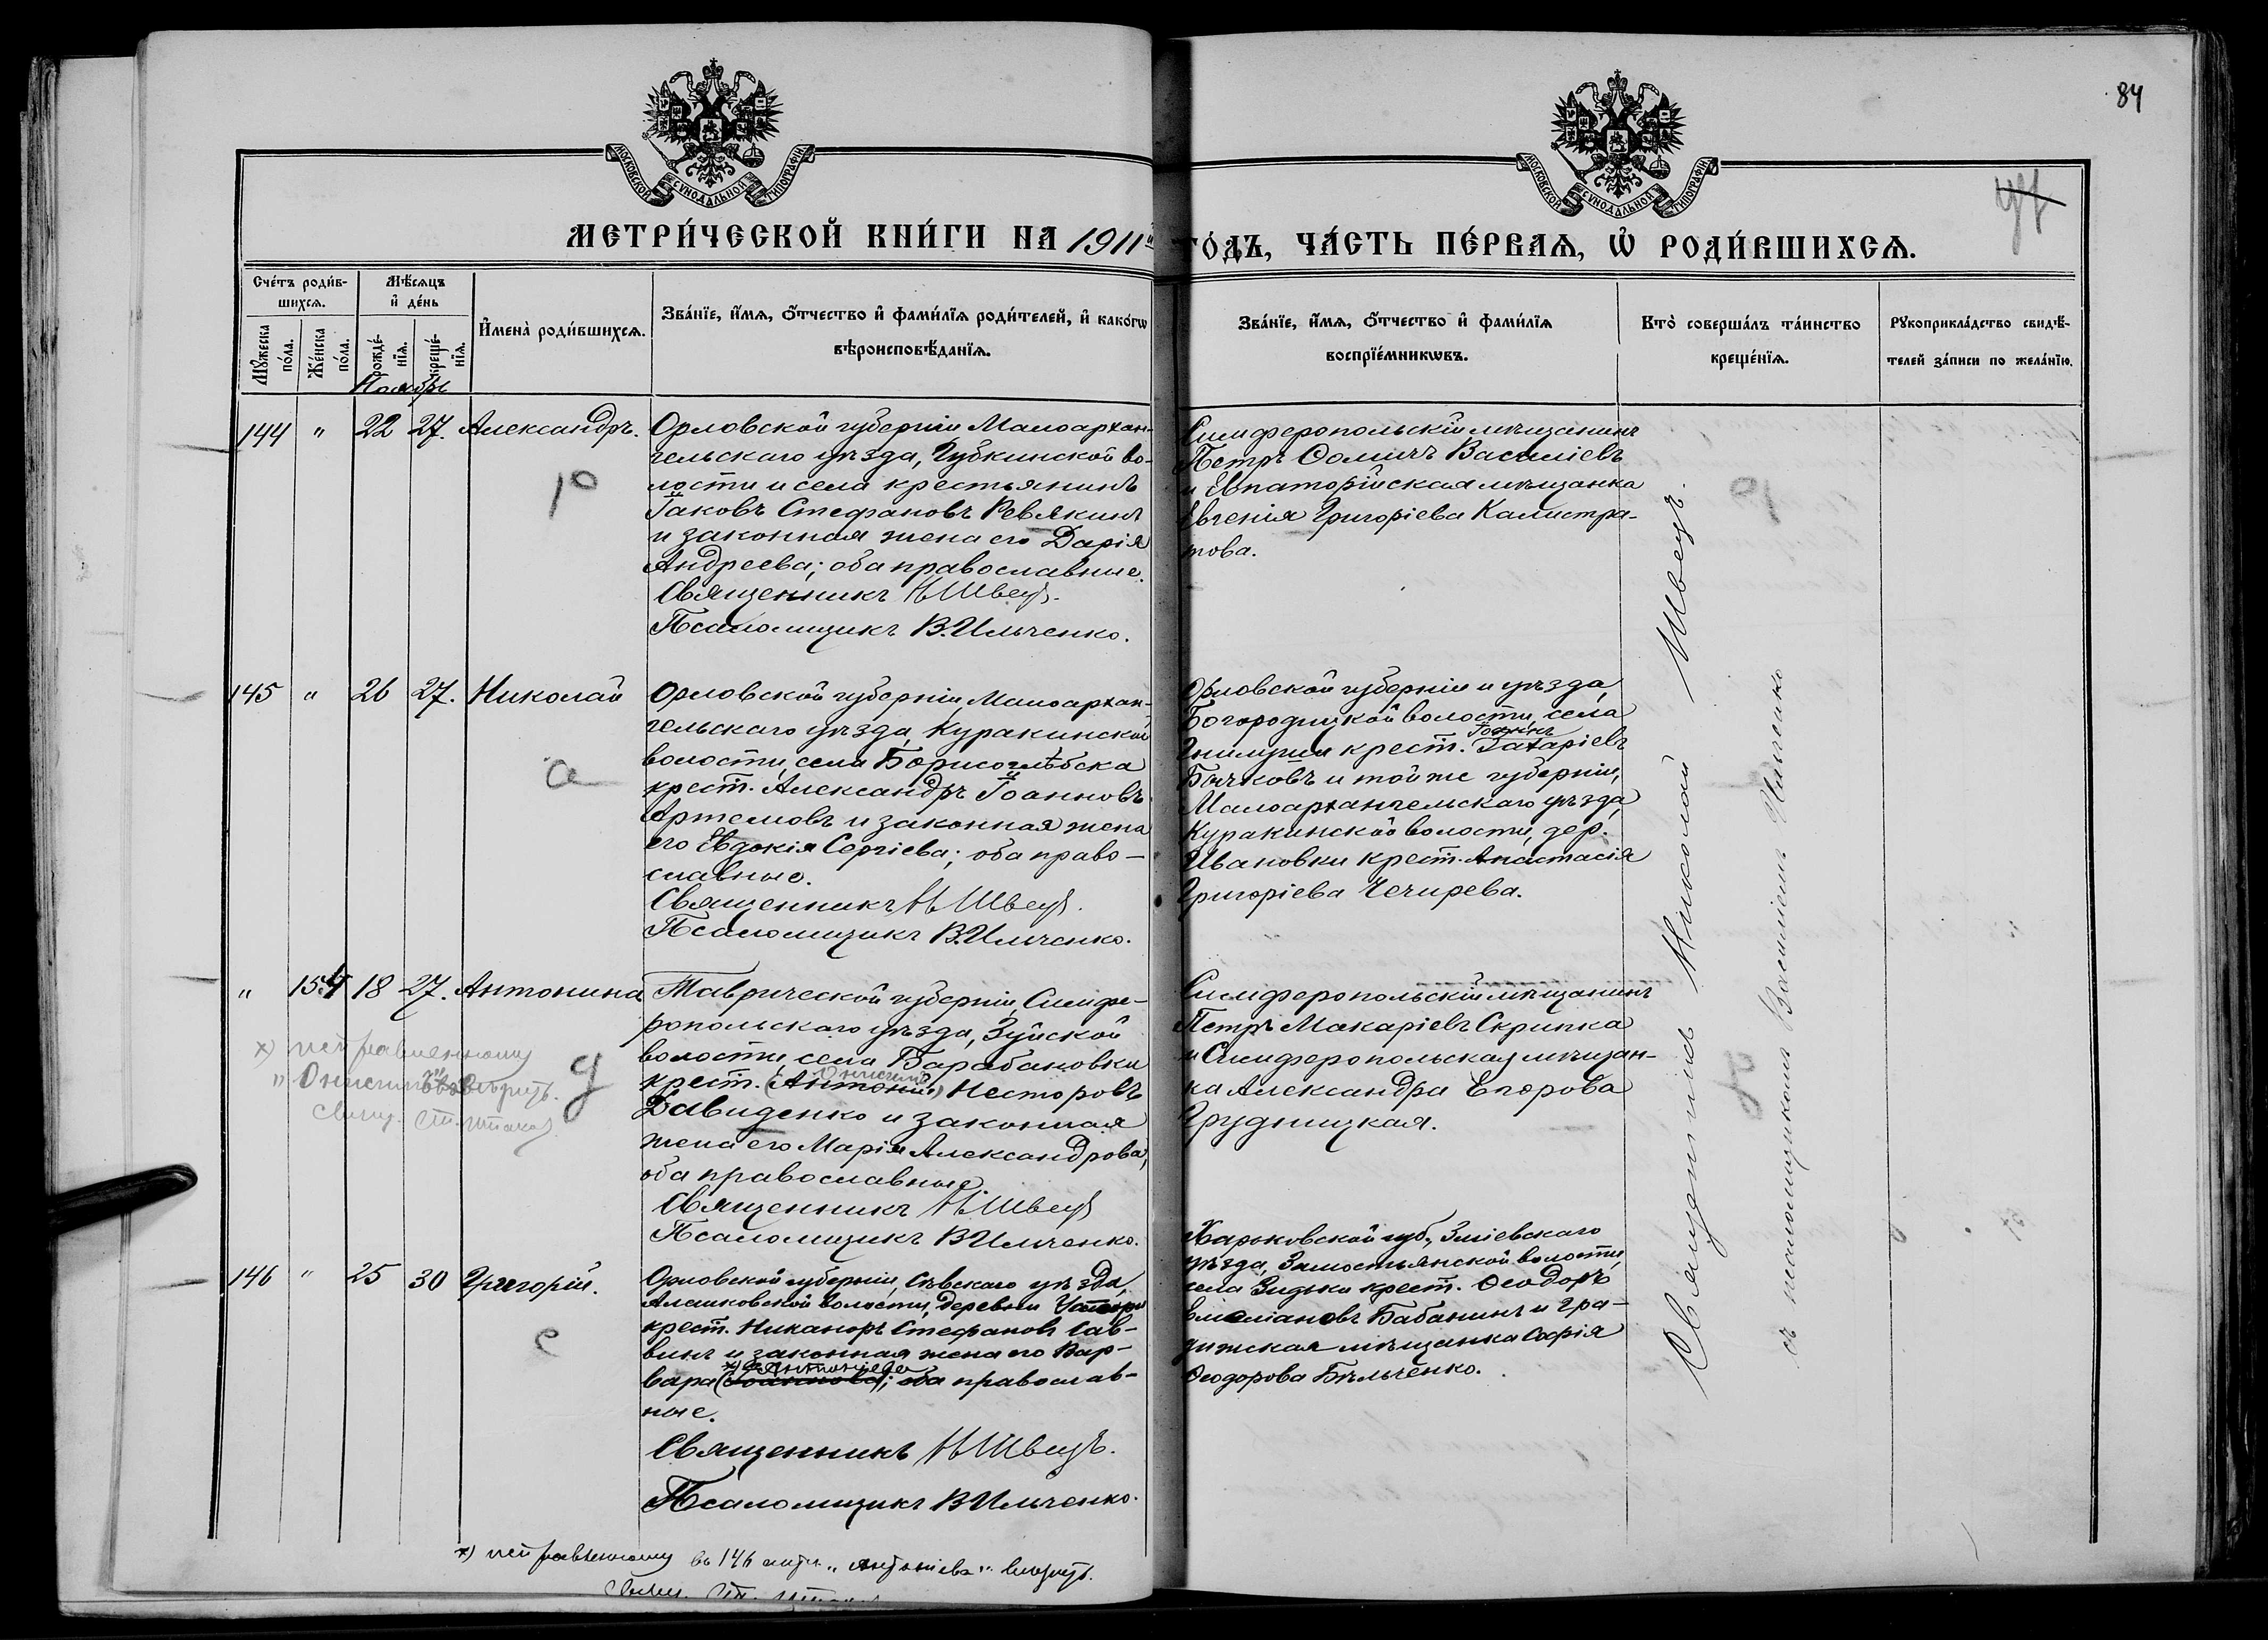 84
МОСКОВСКОЙ СУНОДАЛЬНОЙ ТИПОГРАФІИ
МОСКОВСКОЙ СУНОДАЛЬНОЙ ТИПОГРАФІИ
МЕТРИ́ЧЕСКОЙ КНИ́ГИ НА 1911й
ГО́ДЪ, ЧА́СТЬ ПЕ́РВАѦ, Ѡ҆ РОДИ́ВШИХСѦ.
Сче́тъ роди́в-
шихсѧ.
Мꙋ́жеска по́ла.
Же́нска по́ла.
Мѣ́сѧцъ
и҆ де́нь
рожде́-
нїѧ.
креще́-
нїѧ.
И҆мена̀ роди́вшихсѧ.
Зва́нїе, и҆́мѧ, ѻ҆́тчество и҆ фами́лїѧ роди́телей, и҆ како́гѡ
вѣроисповѣ́данїѧ.
Зва́нїе, и҆́мѧ, ѻ҆́тчество и҆ фами́лїѧ
воспрїе́мникѡвъ.
Кто̀ соверша́лъ та́инство
креще́нїѧ.
Рꙋкоприкла́дство свидѣ́-
телей за́писи по жела́нїю.
Ноябрь
144 " 22 27. Александръ.
Орловской губерніи Малоархан-
гельскаго уѣзда, Губкинской во-
лости и села крестьянинъ
Іаковъ Стефановъ Ревякинъ
и законная жена его Дарія
Андреева; оба православные.
Священникъ Н Швецъ.
Псаломщикъ В. Ильченко.
Симферопольскій мѣщанинъ
Петръ Ѳомичъ Василіевъ
и Евпаторійская мѣщанка
Евгенія Григоріева Калистра-
това.
145 " 26 27. Николай
Орловской губерніи Малоархан-
гельскаго уѣзда, Куракинской
волости, села Борисоглѣбска
крест. Александръ Іоанновъ
Артемовъ и законная жена
его Евдокія Сергіева; оба право-
славные.
Священникъ Н Швецъ.
Псаломщикъ В. Ильченко.
Орловской губерніи и уѣзда,
Богородицкой волости, села
Гнилуши крест. Захаріевъ
Бычковъ и той же губерніи,
Малоархангельскаго уѣзда,
Куракинской волости, дер.
Ивановки крест. Анастасія
Григоріева Чечирева.
" 154 18 27. Антонина
Таврической губерніи, Симфе-
ропольскаго уѣзда, Зуйской
волости, села Барабановки
Онисимъ
крест. (Антоній) Несторовъ
Давиденко и законная
жена его Марія Александрова,
оба православные.
Священникъ Н Швецъ
Псаломщикъ В Ильченко.
х) исправленному
"Онисимъ" вѣрить.
Свящ.
Симферопольскій мѣщанинъ
Петръ Макаріевъ Скрипка
и Симферопольская мѣщан-
ка Александра Егорова
Грудницкая.
146 " 25 30 Григорій.
Орловской губерніи, Сѣвскаго уѣзда,
Алешковской волости, деревни
крест. Никаноръ Стефановъ Сав-
винъ и законная жена его Вар-
х) Антоніева
вара (Іоаннова); оба православ-
ные.
Священникъ Н Швецъ.
Псаломщикъ В Ильченко.
Харьковской губ., Зміевскаго
уѣзда, Замостьянской волости,
села Зидьки крест. Ѳеодоръ
Емеліановъ Бабанинъ и Гра-
дижская мѣщанка Софія
Ѳеодорова Бѣльченко.
Священникъ Николай Швецъ.
съ псаломщикомъ Василіемъ Ильченко
х) исправленному въ 146 актѣ "Антоніева" вѣрить.
Свящ.